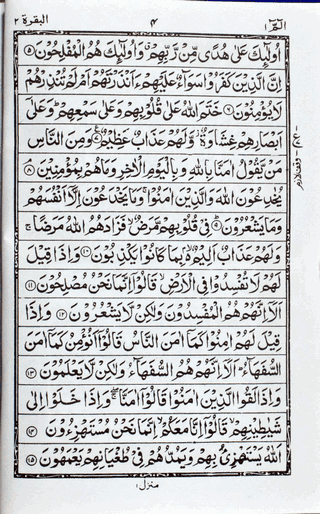 الٓمٓ ١ ٤ البقرة ٢
اُولٰٓئِكَ عَلٰى هُدًى مِّنْ رَّبِّهِمْ ۙ وَاُولٰٓئِكَ هُمُ الْمُفْلِحُوْنَ ۝٥
اِنَّ الَّذِيْنَ كَفَرُوْا سَوَآءٌ عَلَيْهِمْ ءَاَنْذَرْتَهُمْ اَمْ لَمْ تُنْذِرْهُمْ
لَا يُؤْمِنُوْنَ ۝٦ خَتَمَ اللّٰهُ عَلٰى قُلُوْبِهِمْ وَعَلٰى سَمْعِهِمْ ؕ وَعَلٰٓى
اَبْصَارِهِمْ غِشَاوَةٌ ۫ وَّلَهُمْ عَذَابٌ عَظِيْمٌ ۝٧ وَمِنَ النَّاسِ
مَنْ يَّقُوْلُ اٰمَنَّا بِاللّٰهِ وَبِالْيَوْمِ الْاٰخِرِ وَمَا هُمْ بِمُؤْمِنِيْنَ ۝٨
يُخٰدِعُوْنَ اللّٰهَ وَالَّذِيْنَ اٰمَنُوْا ۚ وَمَا يَخْدَعُوْنَ اِلَّآ اَنْفُسَهُمْ
وَمَا يَشْعُرُوْنَ ۝٩ فِيْ قُلُوْبِهِمْ مَّرَضٌ ۙ فَزَادَهُمُ اللّٰهُ مَرَضًا ۚ
وَلَهُمْ عَذَابٌ اَلِيْمٌ ۢ ۙ بِمَا كَانُوْا يَكْذِبُوْنَ ۝١٠ وَاِذَا قِيْلَ
لَهُمْ لَا تُفْسِدُوْا فِي الْاَرْضِ ۙ قَالُوْٓا اِنَّمَا نَحْنُ مُصْلِحُوْنَ ۝١١
اَلَآ اِنَّهُمْ هُمُ الْمُفْسِدُوْنَ وَلٰكِنْ لَّا يَشْعُرُوْنَ ۝١٢ وَاِذَا
قِيْلَ لَهُمْ اٰمِنُوْا كَمَآ اٰمَنَ النَّاسُ قَالُوْٓا اَنُؤْمِنُ كَمَآ اٰمَنَ
السُّفَهَآءُ ؕ اَلَآ اِنَّهُمْ هُمُ السُّفَهَآءُ وَلٰكِنْ لَّا يَعْلَمُوْنَ ۝١٣
وَاِذَا لَقُوا الَّذِيْنَ اٰمَنُوْا قَالُوْٓا اٰمَنَّا ۖ وَاِذَا خَلَوْا اِلٰى
شَيٰطِيْنِهِمْ ۙ قَالُوْٓا اِنَّا مَعَكُمْ ۙ اِنَّمَا نَحْنُ مُسْتَهْزِءُوْنَ ۝١٤
اَللّٰهُ يَسْتَهْزِئُ بِهِمْ وَيَمُدُّهُمْ فِيْ طُغْيَانِهِمْ يَعْمَهُوْنَ ۝١٥
منزل ١